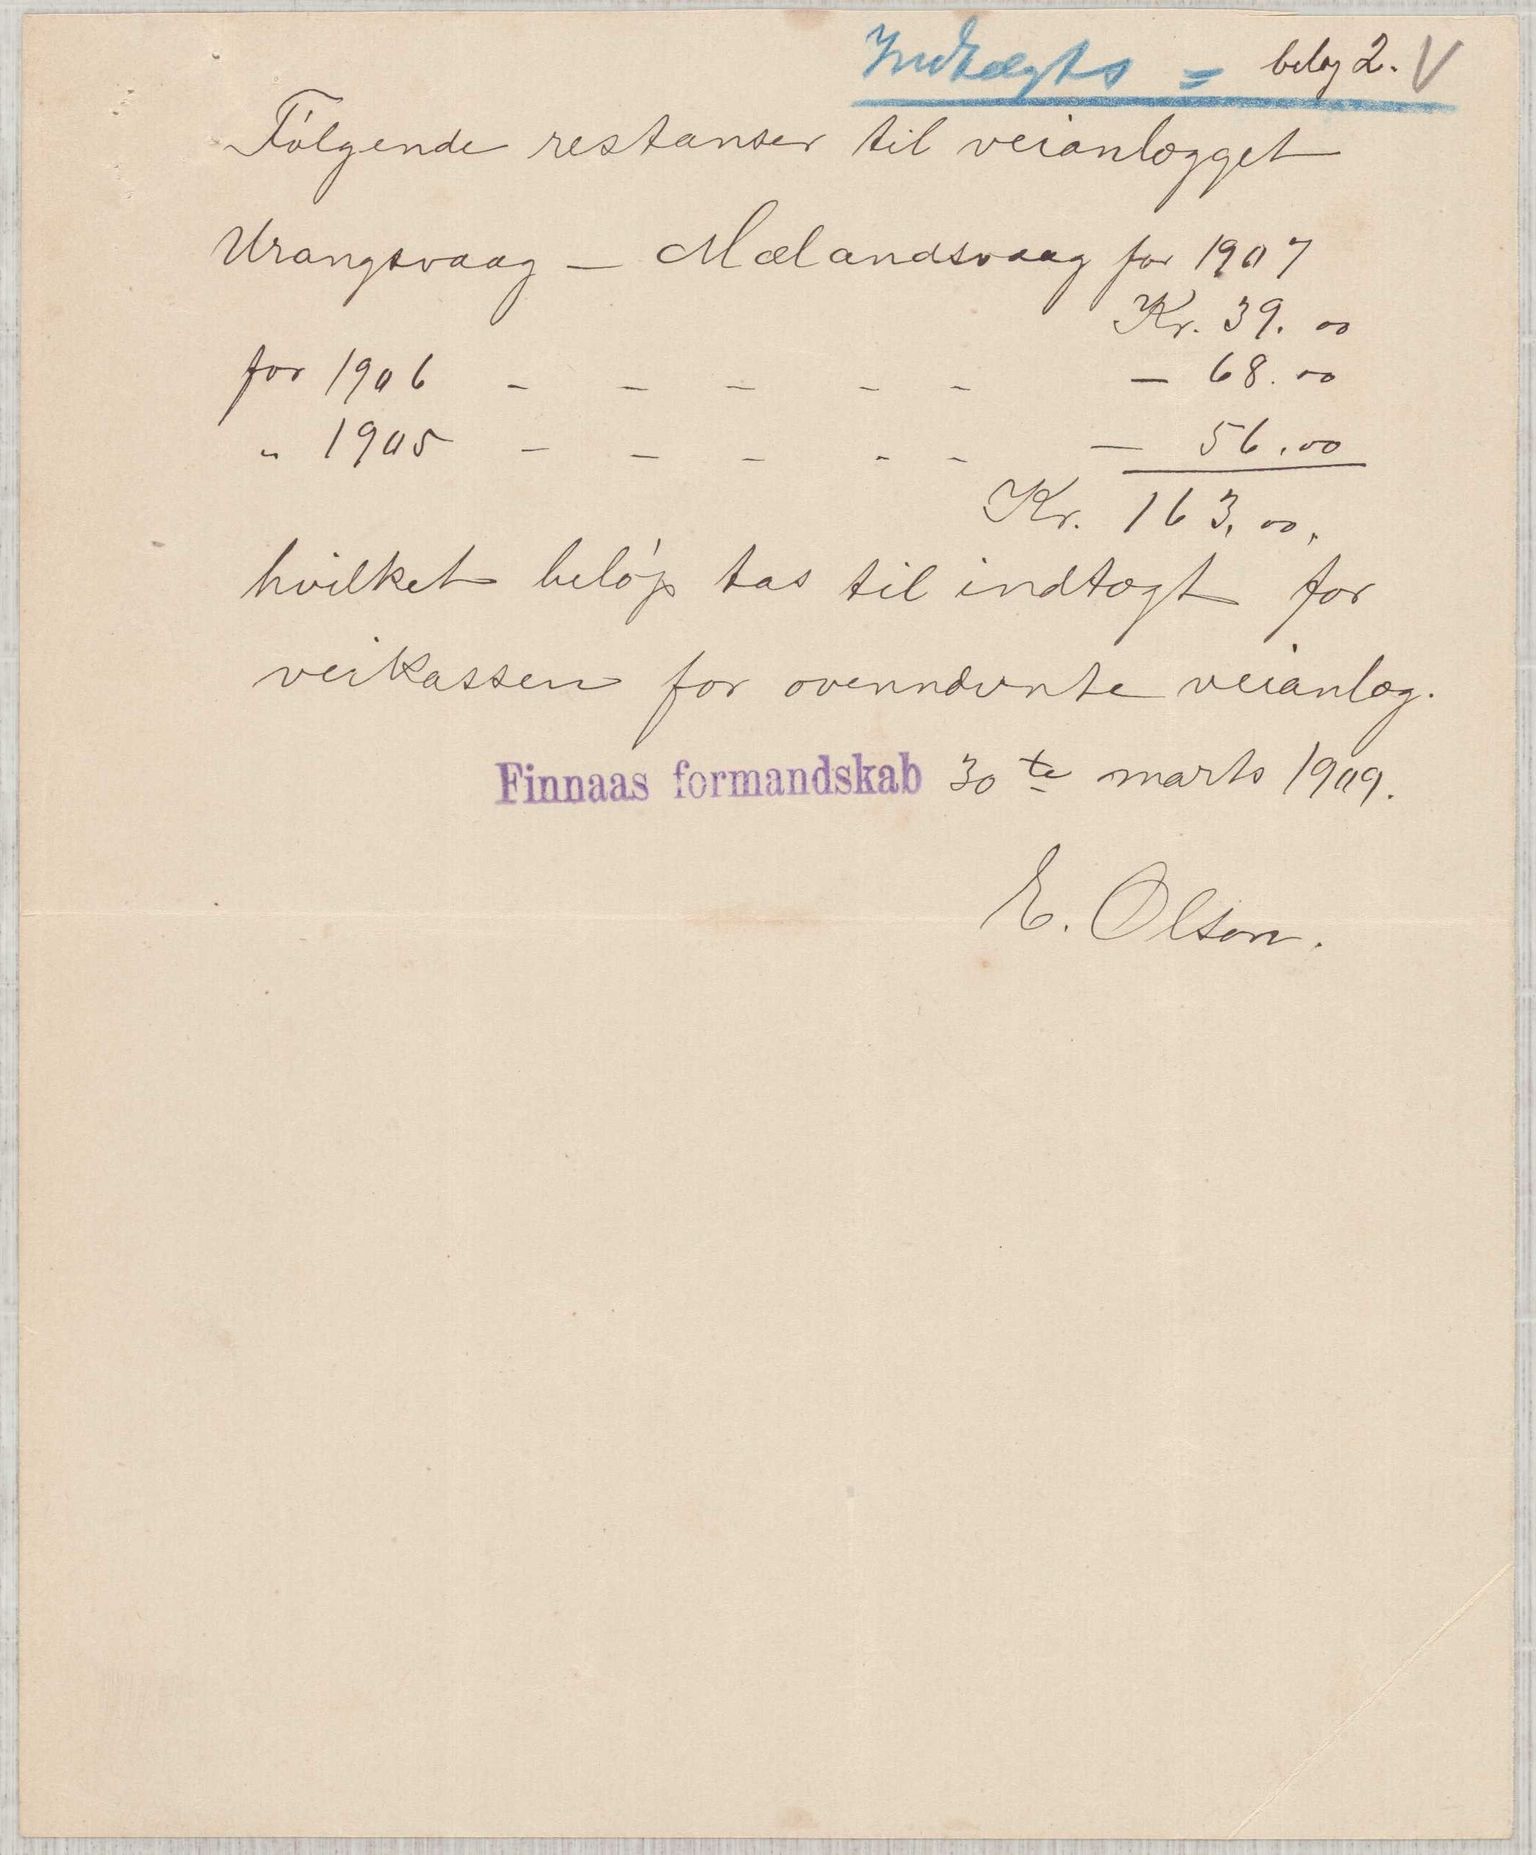 Indtægts = bilag 2. V
Følgende restanser til veianlægget
Urangsvaag — Mælandsvaag for 1907
Kr. 39.00
for 1906 - - - - - — 68.00
" 1905 - - - - - — 56.00
Kr. 163.00.
hvilket beløp tas til indtægt for
veikassen for ovennævnte veianlæg.
Finnaas formandskab 30te marts 1909.
E. Olson.